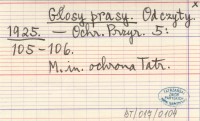 x
Głosy prasy. Odczyty.
1925. — Ochr. Przyr. 5:
105-106.
M. in. ochrona Tatr.
bT/017/0104